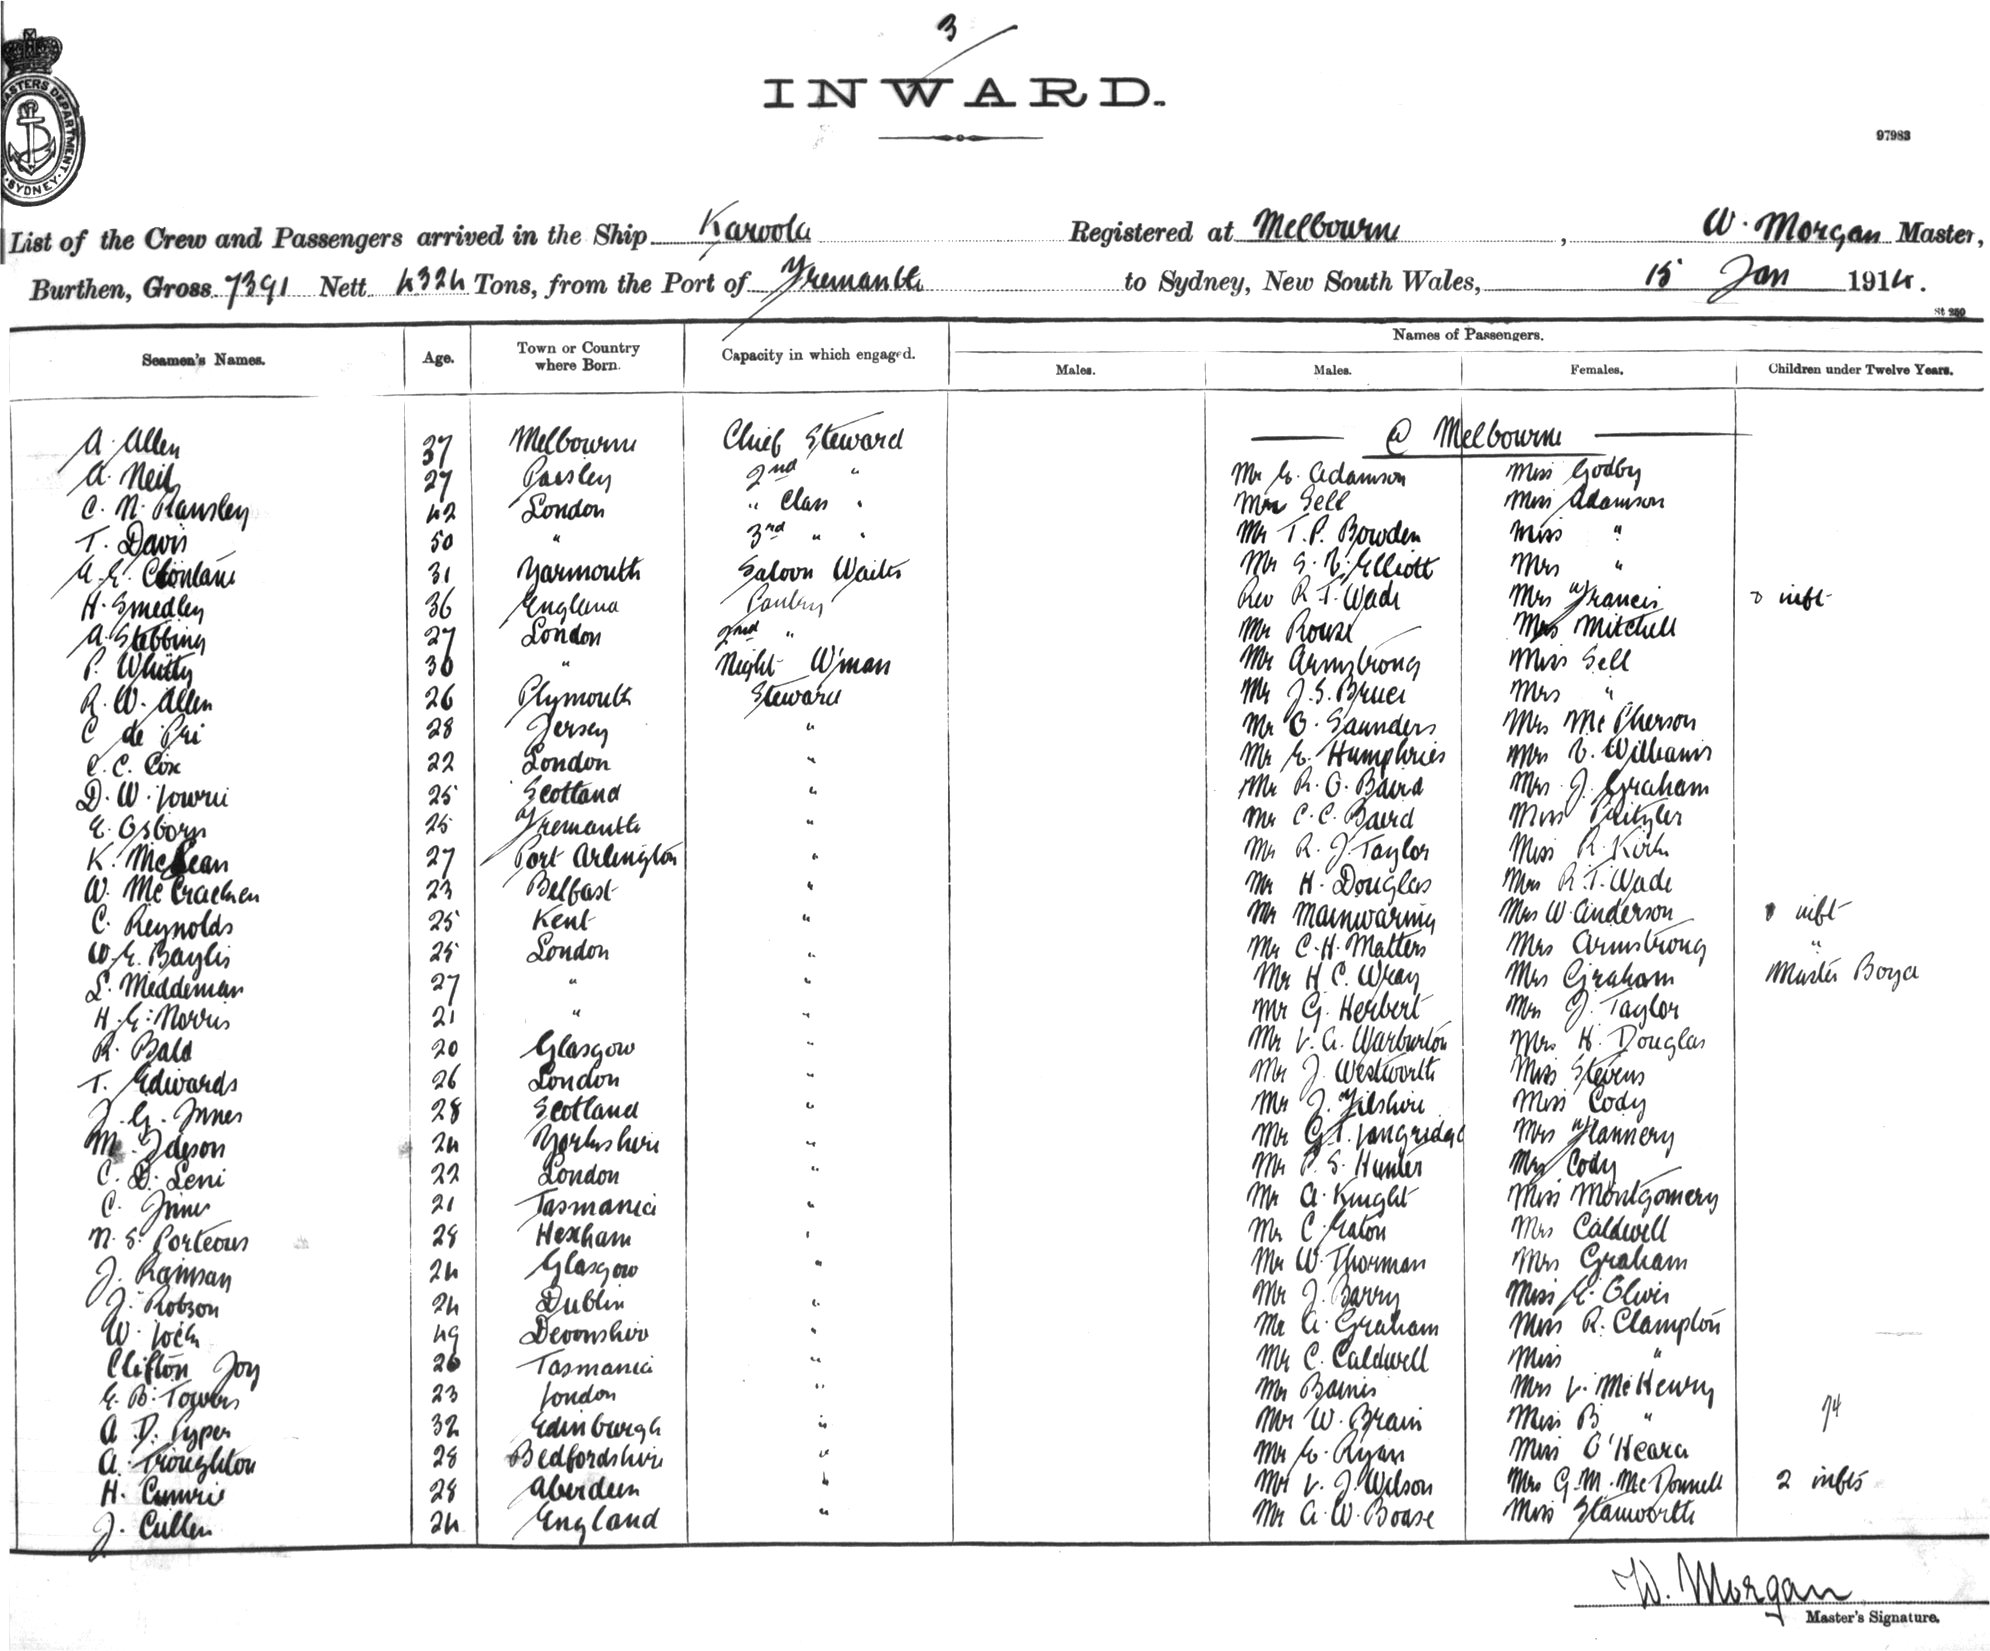 3
INWARD.
MASTERS DEPARTMENT. SYDNEY.
97983
List of the Crew and Passengers arrived in the Ship Karoola Registered at Melbourne, W. Morgan Master,
Burthen, Gross 7391 Nett 4324 Tons, from the Port of Fremantle to Sydney, New South Wales, 15 Jan 1914.
St 250
Names of Passengers.
Seamen's Names. Age. Town or Country where Born. Capacity in which engaged. Males. Males. Females. Children under Twelve Years.
A. Allen 37 Melbourne Chief Steward @ Melbourne
A. Neil 27 Paisley 2nd " Mr E. Adamson Miss Godby
C. N. 42 London " Class " Sell Miss Adamson
T. Davis 50 " 3rd " " Mr T. P. Bowden Miss "
A. E. 31 Yarmouth Saloon Waiter Mr S. Elliott Mrs "
H. Smedley 36 England Pantry Rev R. T. Wade Mrs Francis inft
A. Stebbing 27 London 2nd " Mr Rouse Mitchell
P. Whitty 30 " Night W'man Mr Armstrong Miss Sell
R. W. Allen 26 Plymouth Steward Mr J. S. Bruce Mrs "
C de 28 Jersey " Mr O. Saunders Mrs McPherson
C. C. Cox 22 London " Mr E. Humphries Mrs V. Williams
D. W. Lowrie 25 Scotland " Mr R. O. Baird Mrs J. Graham
E. Osborn 25 Fremantle " Mr C. C. Baird Miss
K. McLean 27 Port Arlington " Mr R. J. Taylor Miss R. Kirk
W. McCracken 23 Belfast " Mr H. Douglas Mrs R. T. Wade
C. Reynolds 25 Kent " Mr Mainwaring Mrs W. Anderson inft
W. E. Baylis 25 London " Mr C. H. Matters Mrs Armstrong "
L. Meddeman 27 " " Mr H C. Wray Mrs Graham Master Boyd
H. E. Norris 21 " " Mr G. Herbert Mrs J. Taylor
R. Bald 20 Glasgow " Mr V. A. Warburton Mrs H. Douglas
T. Edwards 26 London " Mr J. Westworth Miss Stevens
J. G. Innes 28 Scotland " Mr J. Filshire Miss Cody
M. Ideson 24 Yorkshire " Mr G. T. Langridge Mrs Flannery
C. D. Leni 22 London " Mr P. S. Hunter Mrs Cody
C. 21 Tasmania " Mr A. Knight Miss Montgomery
N. S. Porteous 28 Hexham " Mr C. Eaton Mrs Caldwell
J. Ramsay 24 Glasgow " Mr W. Thorman Mrs Graham
J. Robson 24 Dublin " Mr J. Barry Miss E. Oliver
W. Lock 49 Devonshire " Mr A. Graham Miss R. Clampton
Clifton Joy 26 Tasmania " Mr C. Caldwell Miss "
E. B. Towers 23 London " Mr Baines Mrs L. McHenry
A D. Pyper 32 Edinburgh " Mr W. Brain Miss B " 74
A. Troughton 28 Bedfordshire " Mr E. Ryan Miss O'Heara
H. Cumrie 28 Aberdeen " Mr L. J. Wilson Mrs G. M. McDonnell 2 infts
J. Cullen 24 England " Mr A. W. Boase Miss Stanworth
W. Morgan
Master's Signature.